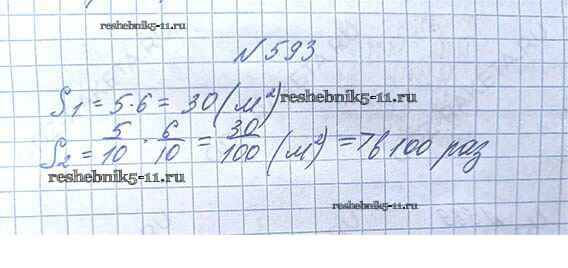 reshebnik5-11.ru
№593
S1 = 5·6 = 30 (м²) reshebnik5-11.ru
S2 = 5/10 · 6/10 = 30/100 (м²) => в 100 раз
reshebnik5-11.ru
reshebnik5-11.ru